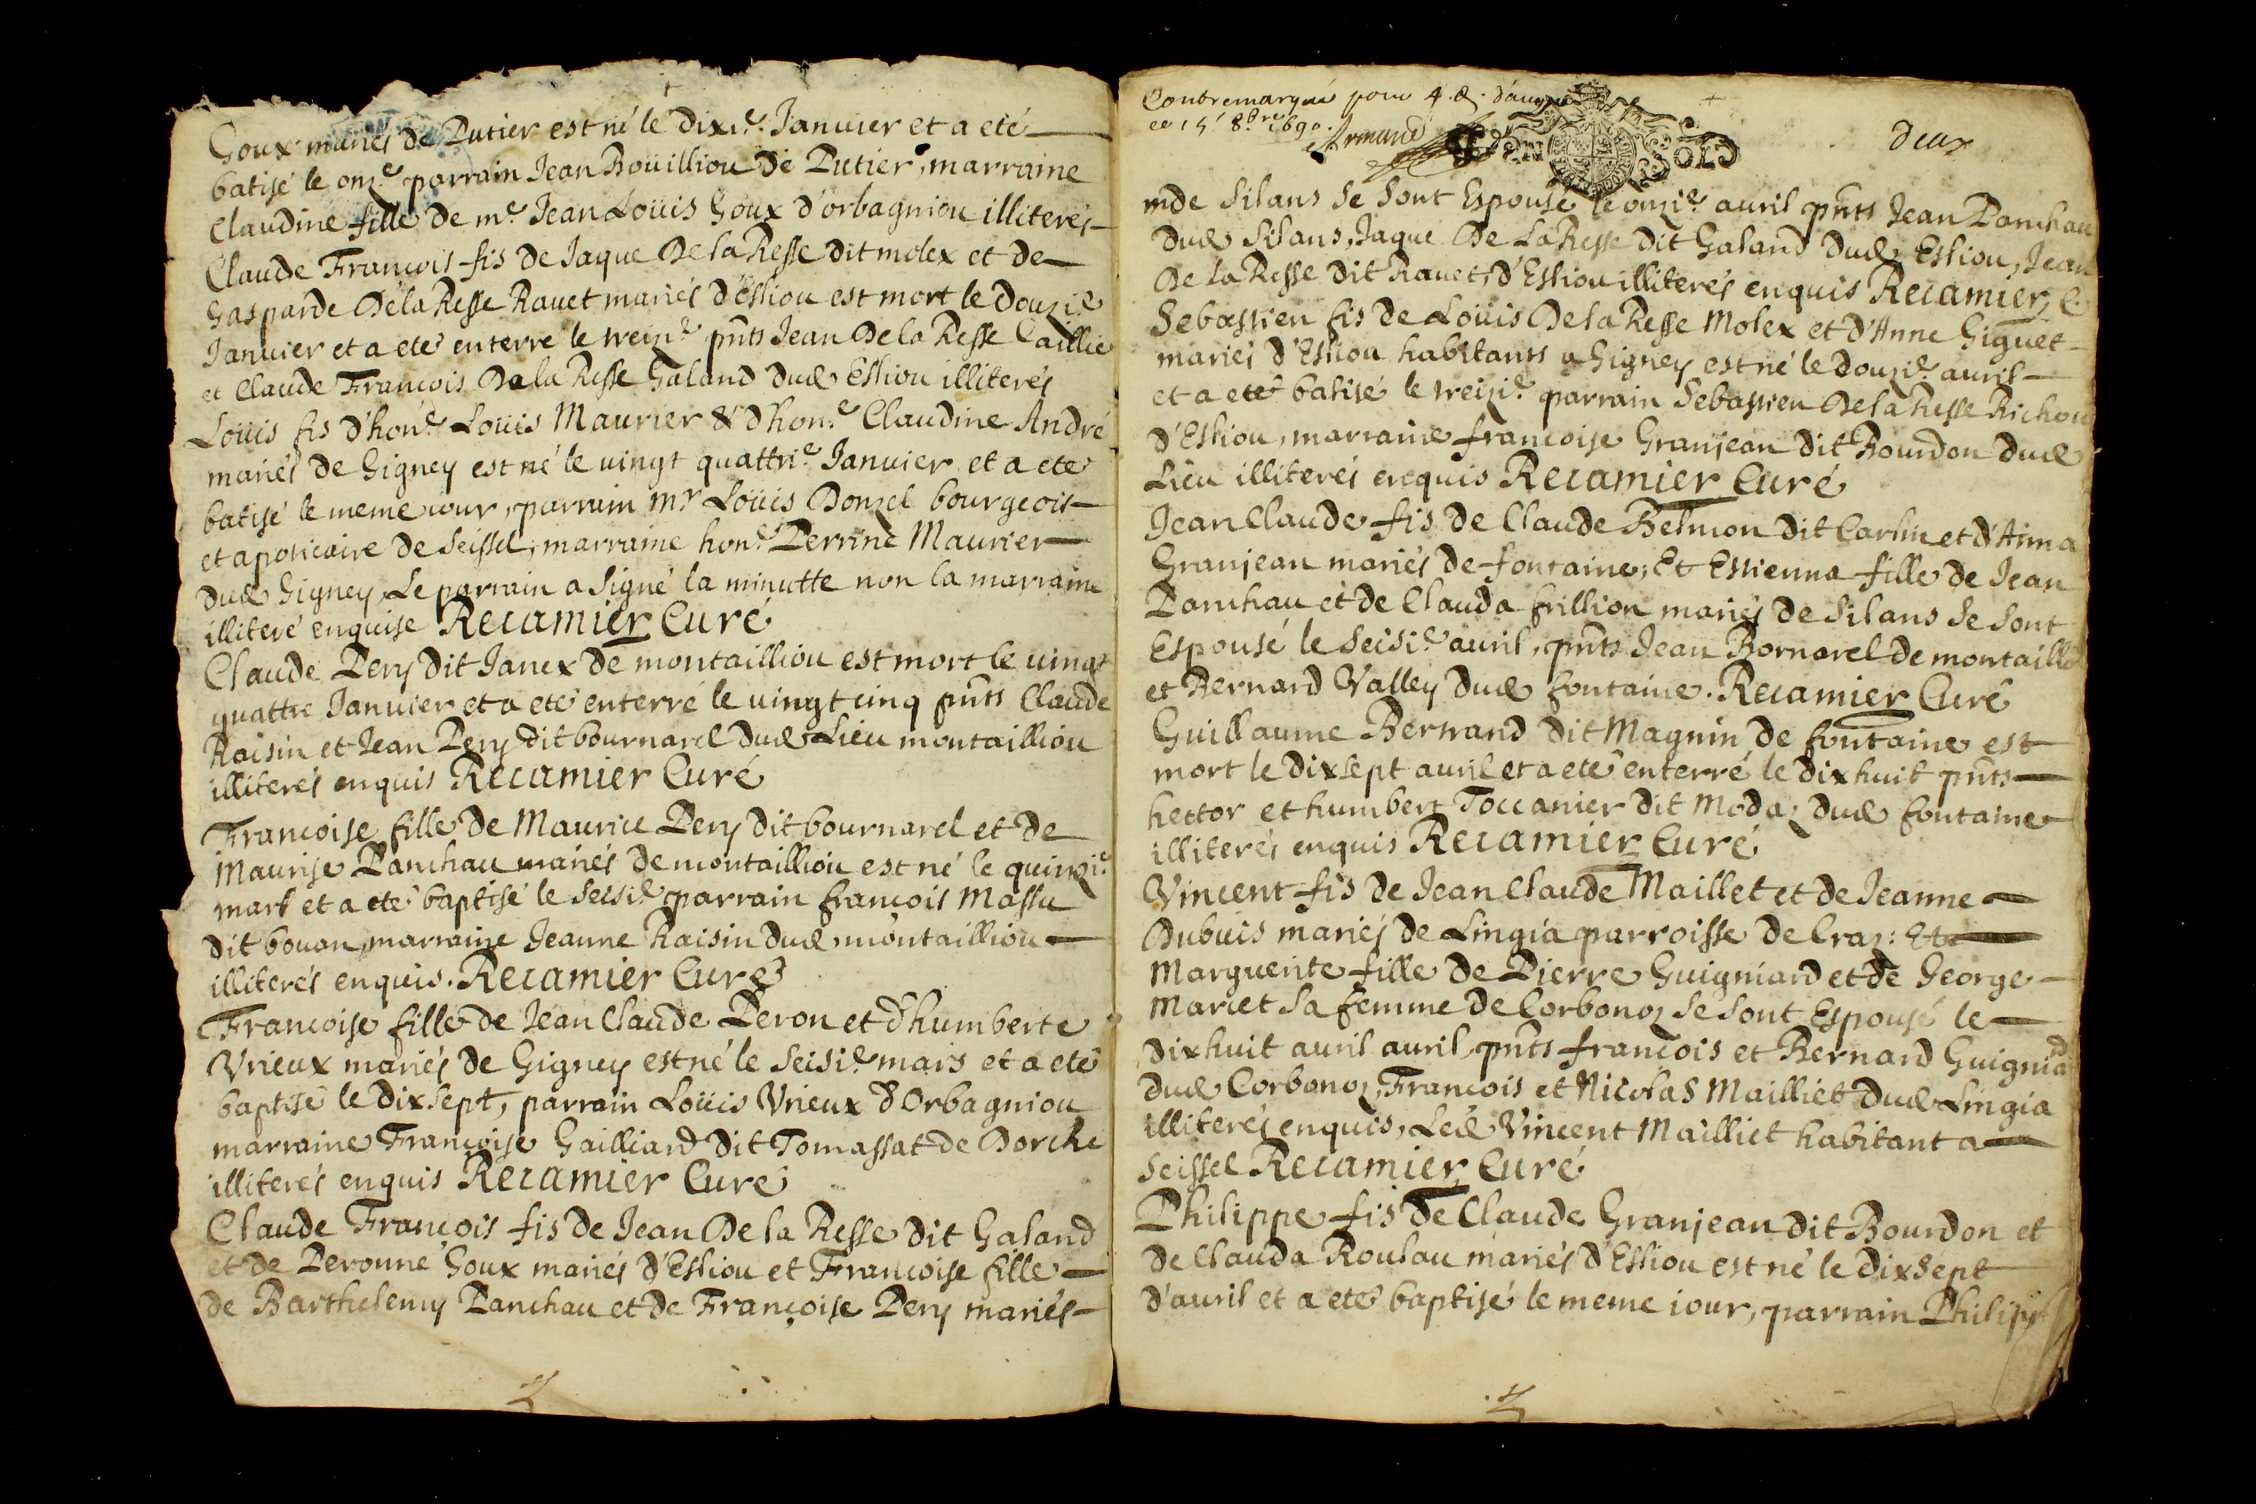 Goux mariés de Putier est né le dixie. Januier et a eté
batisé le onze parrain Jean Boüilliou de Putier, marraine
Claudine fille de me. Jean Loüis Goux d'orbagniou illiterés
Claude François fis de Jaque De la Resse dit molex et de
Gasparde De la Resse Rauet mariés d'Essiou est mort le douzie
Januier et a eté enterré le treize pnts Jean De la Resse Caillie
et Claude François De la Resse Galand dud Essiou illiterés
Loüis fis d'hone. Loüis Maurier & d'hone. Claudine André
mariés de Gigney est né le uingt quattrie. Januier et a eté
batisé le meme iour, parrain mr Loüis Donzel bourgeois
et apoticaire de Seissel, marraine hone. Perrine Maurier
dud Gigney, Le parrain a signé la minutte non la marraine
illiteré enquise Recamier Curé
Claude Pery dit Janex de montailliou est mort le uingt
quattre Januier et a eté enterré le uingt cinq pnts Claude
Raisin et Jean Pery dit bournarel dud Lieu montailliou
illiterés enquis Recamier Curé
Francoise fille de Maurice Pery dit bournarel et de
Maurise Panchau mariés de montailliou est né le quinzie
mars et a eté baptisé le seisie. parrain françois Massu
dit bouan, marraine Jeanne Raisin dud montailliou
illiterés enquis. Recamier Curé
Francoise fille de Jean Claude Peron et d'humberte
Vrieux mariés de Gigney est né le seisie. mars et a eté
baptisé le dixsept, parrain Loüis Vrieux d'Orbagniou
marraine Françoise Gailliard dit Tomassat de Dorche
illiterés enquis Recamier Curé
Claude François fis de Jean De la Resse dit Galand
et de Peronne Goux mariés d'Essiou et Francoise fille
de Barthelemy Panchau et de Françoise Pery mariés
Contremarqué pour 4. d.
ce 15 8bre 1690. Armand
deux
de Silans se sont Espousé le onzie. auril pnts Jean Panchau
dud Silans, Jaque De La Resse dit Galand dud Essiou, Jean
De la Resse dit Rauet, d'Essiou illiterés enquis Recamier, C
Sebastien fis de Loüis De la Resse Molex et d'Anne Giguet
mariés d'Essiou habitants a Gigney est né le douzie. auril
et a eté batisé le treizie. parrain Sebastien De la Resse Richou
d'Essiou, marraine françoise Granjean dit Bourdon dud
Lieu illiterés enquis Recamier Curé
Jean Claude fis de Claude Belmon dit Carlin et d'Aima
Granjean mariés de fontaine; Et Estienna fille de Jean
Panchau et de Clauda frillion mariés de Silans se sont
Espousé le seisie. auril, pnts Jean Bornarel de montaillo
et Bernard Valley dud fontaine. Recamier Curé
Guillaume Bertrand dit Magnin de fontaine est
mort le dixsept auril et a eté enterré le dixhuit pnts
hector et humbert Toccanier dit Modaz dud fontaine
illiterés enquis Recamier Curé
Vincent fis de Jean Claude Maillet et de Jeanne
Dubuis mariés de Lingia parroisse de Craz: Et
Marguerite fille de Pierre Guigniard et de George
Mariet sa femme de Corbonoz se sont Espousé le
dixhuit auril auril, pnts françois et Bernard Guigniard
dud Corbonoz, François et Nicolas Mailliet dud Lingia
illiterés enquis, Led Vincent Mailliet habitant a
Seissel Recamier Curé
Philippe fis de Claude Granjean dit Bourdon et
de Clauda Roulau mariés d'Essiou est né le dixsept
d'auril et a eté baptisé le meme iour, parrain Philipp